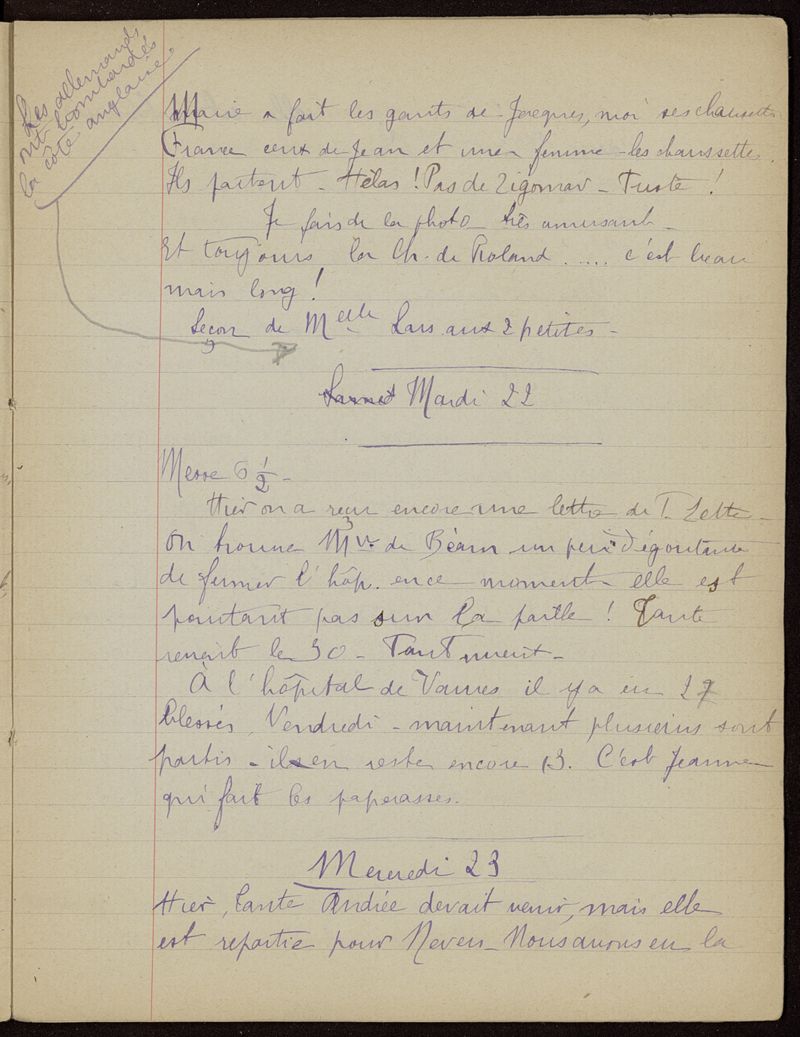 Les allemands
ont bombardés
la côte anglaise.
Marie a fait les gants de Jacques, moi ses chaussettes
France ceux de Jean et une femme les chaussettes.
Ils partent - Hélas ! Pas de Zigomar - Triste !
Je fais de la photo très amusant -
Et toujours la Ch. de Roland ..... c'est beau
mais long !
Leçon de Melle aux 2 petites -
Samedi Mardi 22
Messe 6 1/2 -
Hier on a reçu encore une lettre de T. Lette -
On trouve de Béarn un peu dégoutante
de fermer l'hôp. en ce moment - elle est
pourtant pas sur la paille ! Tante
revient le 30 - Tant mieux -
À l'hôpital de Vannes il y a eu 27
blessés Vendredi - maintenant plusieurs sont
partis - il en reste encore 13. C'est Jeanne
qui fait les paperasses.
Mercredi 23
Hier, tante Andrée devait venir, mais elle
est repartie pour Nevers - Nous avons eu la